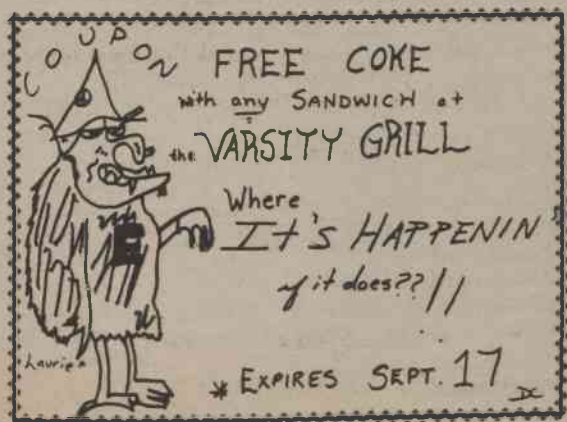 COUPON
FREE COKE
with any SANDWICH at
the VARSITY GRILL
Where
It's HAPPENIN'
if it does??!!
Laurie
* EXPIRES SEPT. 17